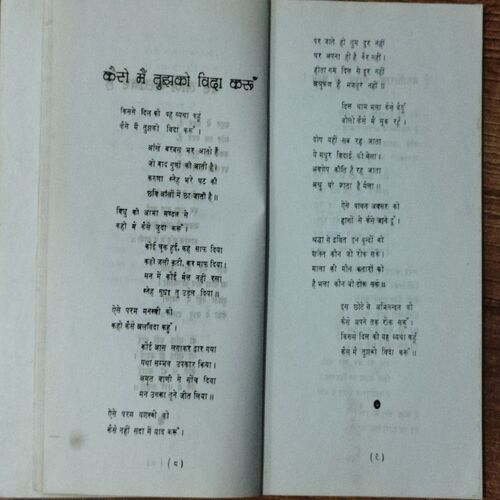 कैसे मैं तुझको विदा करूँ
किससे दिल की यह व्यथा कहूँ
कैसे मैं तुझको विदा करूँ ।
आँखें बरबस भर आती हैं
जो याद गुणों की आती है ।
करुणा स्नेह भरे घट की
छवि आँखों में छा जाती है ॥
विधु को आभा मण्डल से
कहो मैं कैसे जुदा करूँ ।
कोई चूक हुई, कह साफ दिया
कहो जली कटी, कर माफ दिया ।
मन में कोई मैल नहीं रखा
स्नेह सुधा तु उड़ेल दिया ॥
ऐसे परम मनस्वी को
कहो कैसे अलविदा कहूँ ।
कोई आस लगाकर द्वार गया
यथा सम्भव उपकार किया ।
अमृत वाणी से सींच दिया
मन उनका तुने जीत लिया ॥
ऐसे परम यशस्वी को
कैसे नहीं सदा मैं याद करूँ ।
( ८ )
पर जाते हो तुम दूर नहीं
घर अपना ही है गैर नहीं ।
होता गम दिल से दूर नहीं
अश्रुकण है मजबूर नहीं ॥
दिल थाम भला कैसे बैठूं
बोलो कैसे मैं मूक रहूँ ।
दोष यहीं सब रह जाता
ये मधुर विदाई की बेला ।
अवशेष कीर्ति ही रह जाता
ऐसे पावन अवसर को
हाथों से कैसे जाने दूं ।
श्रद्धा से द्रवित इन बून्दों को
शक्ति कौन जो रोक सके ।
माला की मौन कतारों को
है भला कौन जो टोक सके ॥
इस छोटे से अभिनन्दन को
कैसे अपने तक रोक सकूँ ।
किससे दिल की यह व्यथा कहूँ
कैसे मैं तुझको विदा करूँ ॥
( ९ )